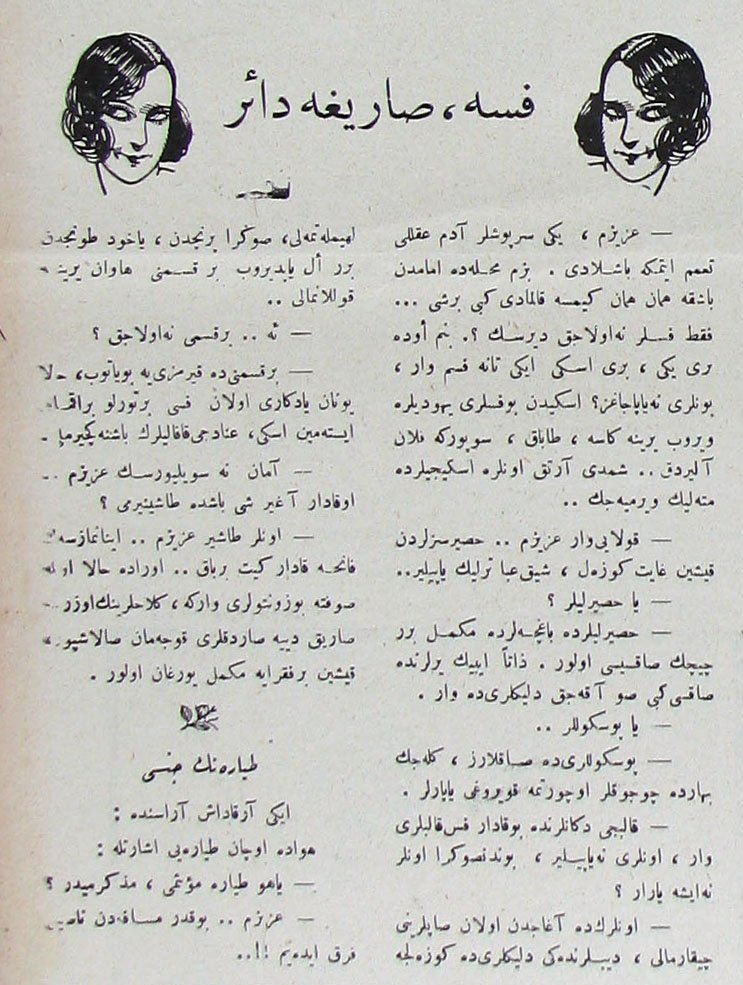 فسه ، صاریغه دائر
— عزیزم ، یکی سرپوشلر آدم عقللی
تعمم ایتمکه باشلادی . بزم محله‌ده امامدن
باشقه همان همان کیمسه قالمادی کبی برشی ...
فقط فسلر نه‌اولاجق دیرسك ؟. بنم أوده
بری یکی ، بری اسکی ایکی تانه فسم وار ،
بونلری نه‌یاپاجاغز؟ اسکیدن بوفسلری یهودیلره
ویروب یرینه کاسه ، طاباق ، سوپورکه فلان
آلیردق .. شمدی آرتق اونلره اسکیجیلرده
مته‌لیك ویرمیه‌جك ..
— قولایی‌وار عزیزم .. حصیرسزلردن
قیشین غایت کوزه‌ل ، شیق‌عبا ترلیك یاپیلیر..
— یا حصیرلیلر ؟
— حصیرلیلرده باغچه‌لرده مکمل برر
چیچك صاقسیسی اولور . ذاتاً ایپیك یرلرنده
صاقسی‌کبی صو آقه‌جق دلیکلری‌ده وار .
— یا پوسکوللر ..
— پوسکوللری‌ده صاقلارز ، کله‌جك
بهارده چوجوقلر اوچورتمه قویروغی یاپارلر .
— قالپجی دکانلرنده بوقادار فس‌قالپلری
وار ، اونلری نه‌یاپییلیر ، بوندنصوکرا اونلر
نه‌ایشه یارار ؟
— اونلرك‌ده آغاجدن اولان صاپلرینی
چیقارمالی ، دیبلرنده‌کی دلیکلری‌ده کوزه‌لجه
لهیمله‌تمه‌لی، صوکرا پرنجدن ، یاخود طونجدن
برر أل یاپدیروب بر قسمنی هاوان یرینه
قوللانمالی ..
— ئه .. برقسمی نه‌اولاجق ؟
— برقسمنی‌ده قیرمزی‌یه بویاتوب، حالا
یونان یادکاری اولان فسی برتورلو
ایسته‌مین اسکی، عنادجی‌قافالیلرك باشنه
— آمان نه سویلیورسك عزیزم ..
اوقادار آغیر شی باشده طاشینیرمی ؟
— اونلر طاشیر عزیزم .. اینانمازسه‌ك
فاتحه قادار کیت برباق .. اوراده حالا
صوفته بوزونتولری وارکه ، کلاحلرینك
صاریق دییه صاردقلری قوجه‌مان
قیشین برفقرایه مکمل یورغان اولور .
طیاره‌نك جنسی
ایکی آرقاداش آراسنده :
هواده اوچان طیاره‌یی اشارتله :
— یاهو طیاره مؤنثمی ، مذکرمیدر ؟
— عزیزم .. بوقدر مسافه‌دن ناصیل
فرق ایده‌یم !!..